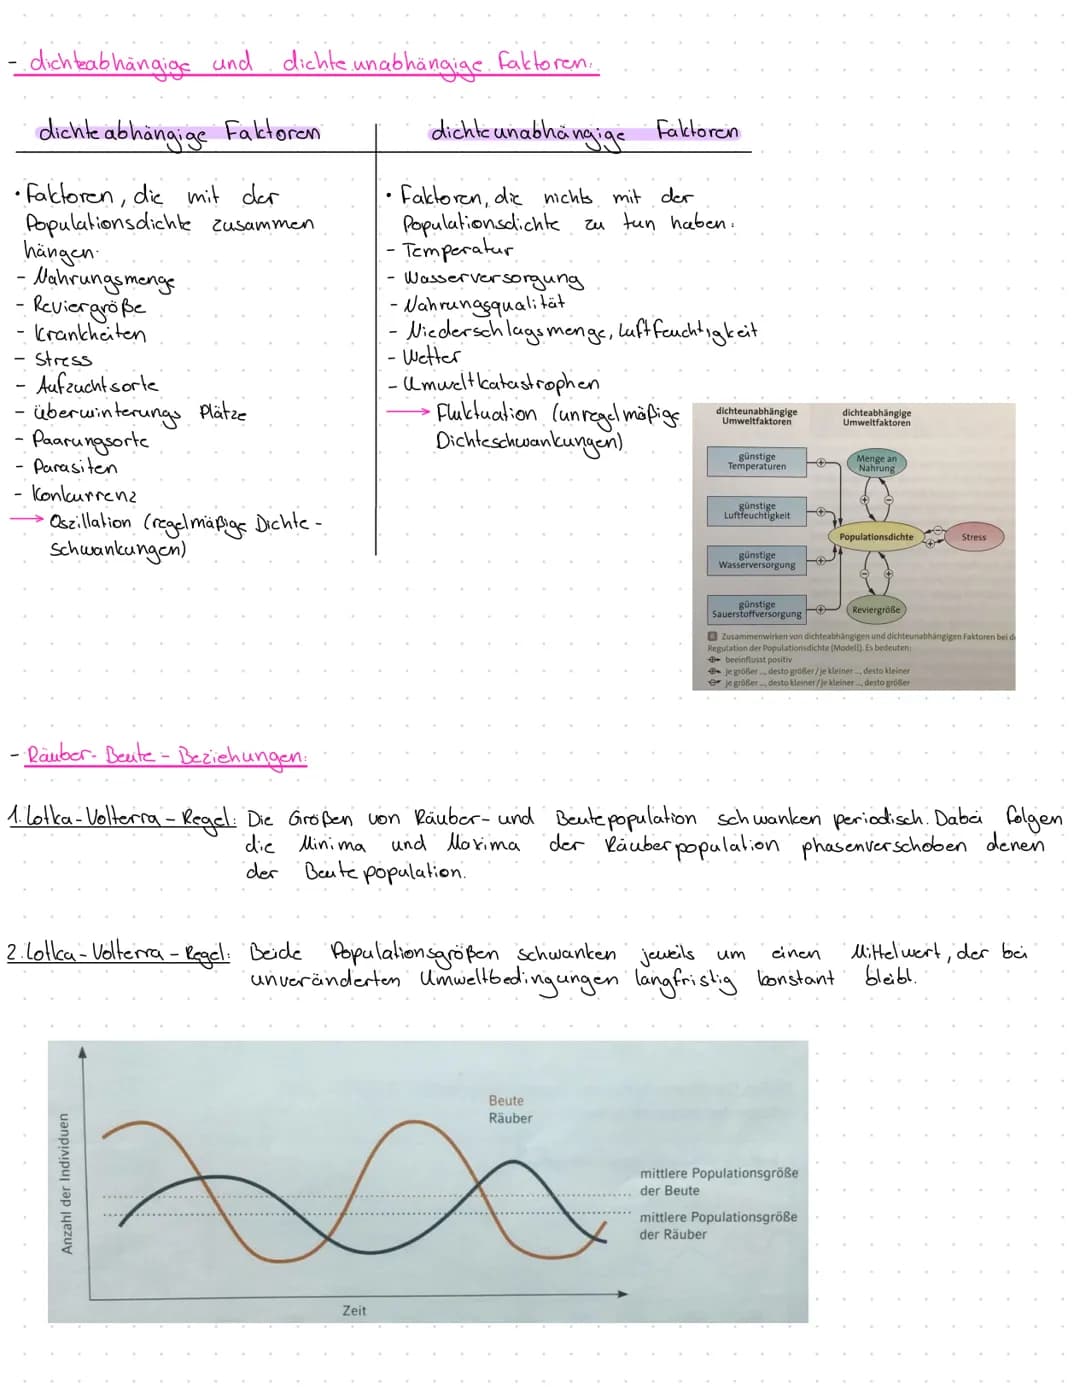 - dichteabhängige und dichteunabhängige Faktoren:
dichteabhängige Faktoren
dichteunabhängige Faktoren
• Faktoren, die mit der
Populationsdichte zusammen
hängen.
- Nahrungsmenge
- Reviergröße
- Krankheiten
- Stress
- Aufzuchtsorte
- überwinterungs Plätze
- Paarungsorte
- Parasiten
- Konkurrenz
→ Oszillation (regelmäßige Dichte-
schwankungen)
• Faktoren, die nichts mit der
Populationsdichte zu tun haben.
- Temperatur
- Wasserversorgung
- Nahrungsqualität
- Niederschlagsmenge, Luftfeuchtigkeit
- Wetter
- Umweltkatastrophen
→ Fluktuation (unregelmäßige
Dichteschwankungen)
dichteunabhängige
Umweltfaktoren
dichteabhängige
Umweltfaktoren
günstige
Temperaturen
günstige
Luftfeuchtigkeit
günstige
Wasserversorgung
günstige
Sauerstoffversorgung
Menge an
Nahrung
Populationsdichte
Stress
Reviergröße
Zusammenwirken von dichteabhängigen und dichteunabhängigen Faktoren bei
Regulation der Populationsdichte (Modell). Es bedeuten:
beeinflusst positiv
je größer ..., desto größer/je kleiner ..., desto kleiner
je größer ..., desto kleiner/je kleiner ..., desto größer
- Räuber-Beute-Beziehungen:
1. Lotka-Volterra-Regel: Die Größen von Räuber- und Beutepopulation schwanken periodisch. Dabei folgen
die Minima und Maxima der Räuberpopulation phasenverschoben denen
der Beutepopulation.
2. Lotka-Volterra-Regel: Beide Populationsgrößen schwanken jeweils um einen Mittelwert, der bei
unveränderten Umweltbedingungen langfristig konstant bleibt.
Anzahl der Individuen
Beute
Räuber
mittlere Populationsgröße
der Beute
mittlere Populationsgröße
der Räuber
Zeit